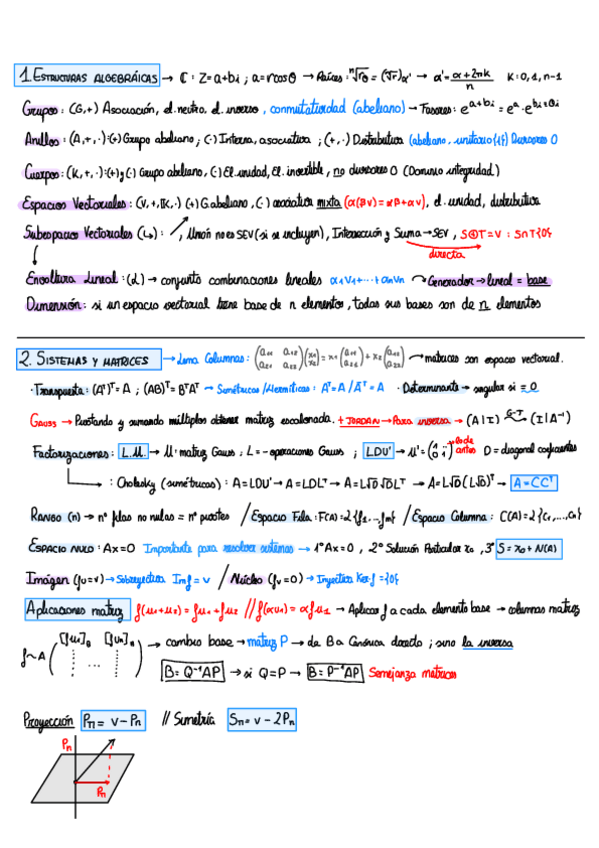 1. ESTRUCTURAS ALGEBRÁICAS → ℂ : Z = a+bi ; a = r cosθ → Raíces: ⁿ√r_θ = (ⁿ√r)α' → α' = (α+2πk)/n K=0,1,n-1
Grupos: (G,+) Asociación, el. neutro, el. inverso, conmutatividad (abeliano) → Fasores: e^(a+bi) = e^a · e^(bi=θi)
Anillos: (A,+,·):(+) Grupo abeliano ; (·) Interna, asociativa ; (+,·) Distributiva (abeliano, unitario{1}) Divisores 0
Cuerpos: (K,+,·):(+)y(·) Grupo abeliano, (·) El. unidad, El. invertible, no divisores 0 (Dominio integridad)
Espacios Vectoriales: (V,+,K,·) (+) G abeliano, (·) asociativa mixta (α(βv) = αβ+αv), el. unidad, distributiva
Subespacios Vectoriales (↳): /, Unión no es SEV (si se incluyen), Intersección y Suma → SEV, S⊕T=V : S∩T{0}
directa
Envoltura Lineal: (L) → conjunto combinaciones lineales α1V1+...+αnVn → Generador → lineal = base
Dimensión: si un espacio vectorial tiene base de n elementos, todas sus bases son de n elementos
2. SISTEMAS Y MATRICES → Columnas: (a11 a12 a21 a22)(x1 x2) = x1(a11 a21) + x2(a12 a22) → matrices son espacio vectorial.
· Transpuesta: (Aᵗ)ᵀ = A ; (AB)ᵀ = BᵀAᵀ → Simétricas/Hermíticas: Aᵀ = A / Āᵀ = A · Determinante → singular si = 0
Gauss → Pivotando y sumando múltiplos obtener matriz escalonada. + JORDAN → Para inversa → (A|I) G-J→ (I|A⁻¹)
Factorizaciones: L.U. → U: matriz Gauss ; L = - operaciones Gauss ; LDU' → U' = lo de antes D = diagonal coeficientes
↳ : Cholesky (simétricas) : A = LDU' → A = LDLᵀ → A = L√D√DLᵀ → A = L√D(L√D)ᵀ → A = CCᵀ
RANGO (n) → nº filas no nulas = nº pivotes / Espacio Fila: F(A) = L{f1,...fm} / Espacio Columna: C(A) = L{C1,...,Cn}
ESPACIO NULO: Ax = 0 Importante para resolver sistemas → 1º Ax=0, 2º Solución Particular x0, 3º S = x0 + N(A)
Imágen (fu=v) → Sobreyectiva Imf = V / Núcleo (fv=0) → Inyectiva Kerf = {0}
Aplicaciones matriz f(u1+u2) = fu1 + fu2 // f(αu1) = αfu1 → Aplicar f a cada elemento base → columnas matriz
f~A ([fu1]B [fun]n ⋮ ... ⋮) → cambio base → matriz P → de B a Canónica directo ; sino la inversa
B = Q⁻¹AP → si Q=P → B = P⁻¹AP Semejanza matrices
Proyección Pπ = v - Pn // Simetría Sπ = v - 2Pn
Pn
Pπ